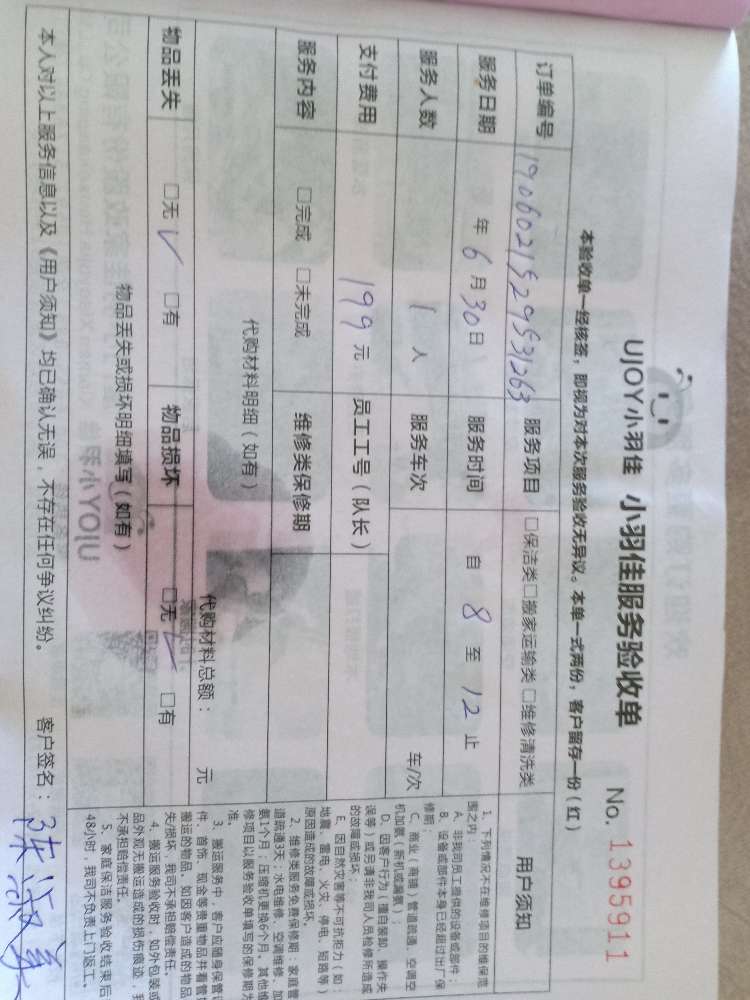 UJOY小羽佳 小羽佳服务验收单 No. 1395911
本验收单一经核签，即视为对本次服务验收无异议。本单一式两份，客户留存一份（红）
订单编号 19060215295531263 服务项目 □保洁类□搬家运输类□维修清洗类
服务日期 年 6 月 30 日 服务时间 自 8 至 12 止
服务人数 1 人 服务车次 车/次
支付费用 199 元 员工工号（队长）
服务内容 □完成 □未完成 维修类保修期
代购材料明细（如有）
代购材料总额： 元
物品丢失 □无 √ □有 物品损坏 □无 √ □有
物品丢失或损坏明细填写（如有）
用户须知
1、下列情况不在维修项目的维保范
围之内：
A、非我司员工提供的设备或部件；
B、设备或部件本身已经超过出厂保
修期；
C、商业（商铺）管道疏通、空调空
机加氨（新机或漏氨）；
D、因客户行为（擅自装卸、操作失
误等）或另请非我司人员检修所造成
的故障或损坏；
E、因自然灾害等不可抗拒力（如：
地震、雷电、火灾、停电、短路等）
原因造成的故障或损坏。
2、维修类服务免费保修期：家庭管
道疏通3天；水电维修、空调维修、加
氨1个月；压缩机更换6个月。其他维
修项目以服务验收单填写的保修期为
准。
3、搬运服务中，客户应随身保管证
件、首饰、现金等贵重物品并看管
搬运的物品，如因客户造成的物品
失/损坏，我司不承担赔偿责任。
4、搬运服务验收时，如外包装或
品外观无搬运造成的损伤痕迹，我
不承担赔偿责任。
5、家庭保洁服务验收结束后
48小时，我司不负责上门返工。
本人对以上服务信息以及《用户须知》均已确认无误，不存在任何争议纠纷。 客户签名：陈淑